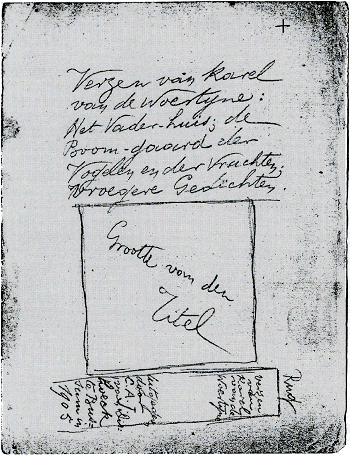 Verzen van Karel
van de Woestyne:
Het Vader-huis; de
Boom-gaard der
Vogelen en der Vruchten;
Vroegere Gedichten.
Grootte van den
Titel
Rug
verzen
van
karel
van de
Woestyne
door
C.A.J.
van Dis-
hoeck
te Bus-
sum in
1905